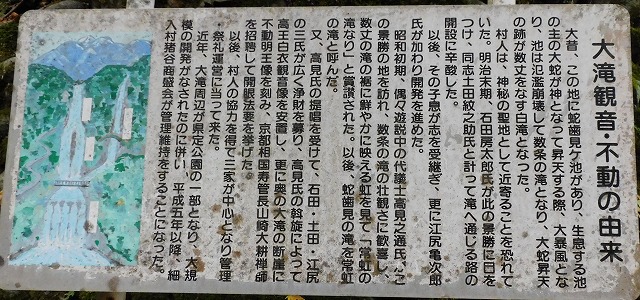 大滝観音・不動の由来
大昔、この地に蛇歯見ケ池があり、生息する池
の主の大蛇が年となって昇天する際、大暴風とな
り、池は氾濫崩壊して数条の滝となり、大蛇昇天
の跡が数丈をなす白滝となった。
村人は、神秘の聖地として近寄ることを恐れて
いた。明治末期、石田房太郎氏が此の景勝に目を
つけ、同志土田紋之助氏と計って滝へ通じる路の
開設に辛酸した。
以後、その子息が志を受継ぎ、更に江尻亀次郎
氏が加わり開発を進めた。
昭和初期、偶々遊説中の代議士高見之通氏、こ
の景勝の地を訪れ、数条の滝の壮観さに歓喜し、
数丈の滝の裾に鮮やかに映える虹を見て「常虹の
滝なり」と賞讃された。以後、蛇歯見の滝を常虹
の滝と呼んだ。
又、高見氏の提唱を受けて、石田・土田・江尻
の三氏が広く浄財を募り、高見氏の斡旋によって
高王白衣観音像を安置し、更に奥の大滝の断崖に
不動明王像を刻み、京都相国寺管長山崎大耕禅師
を招聘して開眼法要を挙げた。
以後、村人の協力を得て三家が中心となり管理
・祭礼運営に当って来た。
近年、大滝周辺が県定公園の一部となり、大規
模の開発がなされたのに併い、平成五年以降、細
入村猪谷商盛会が管理維持をすることになった。